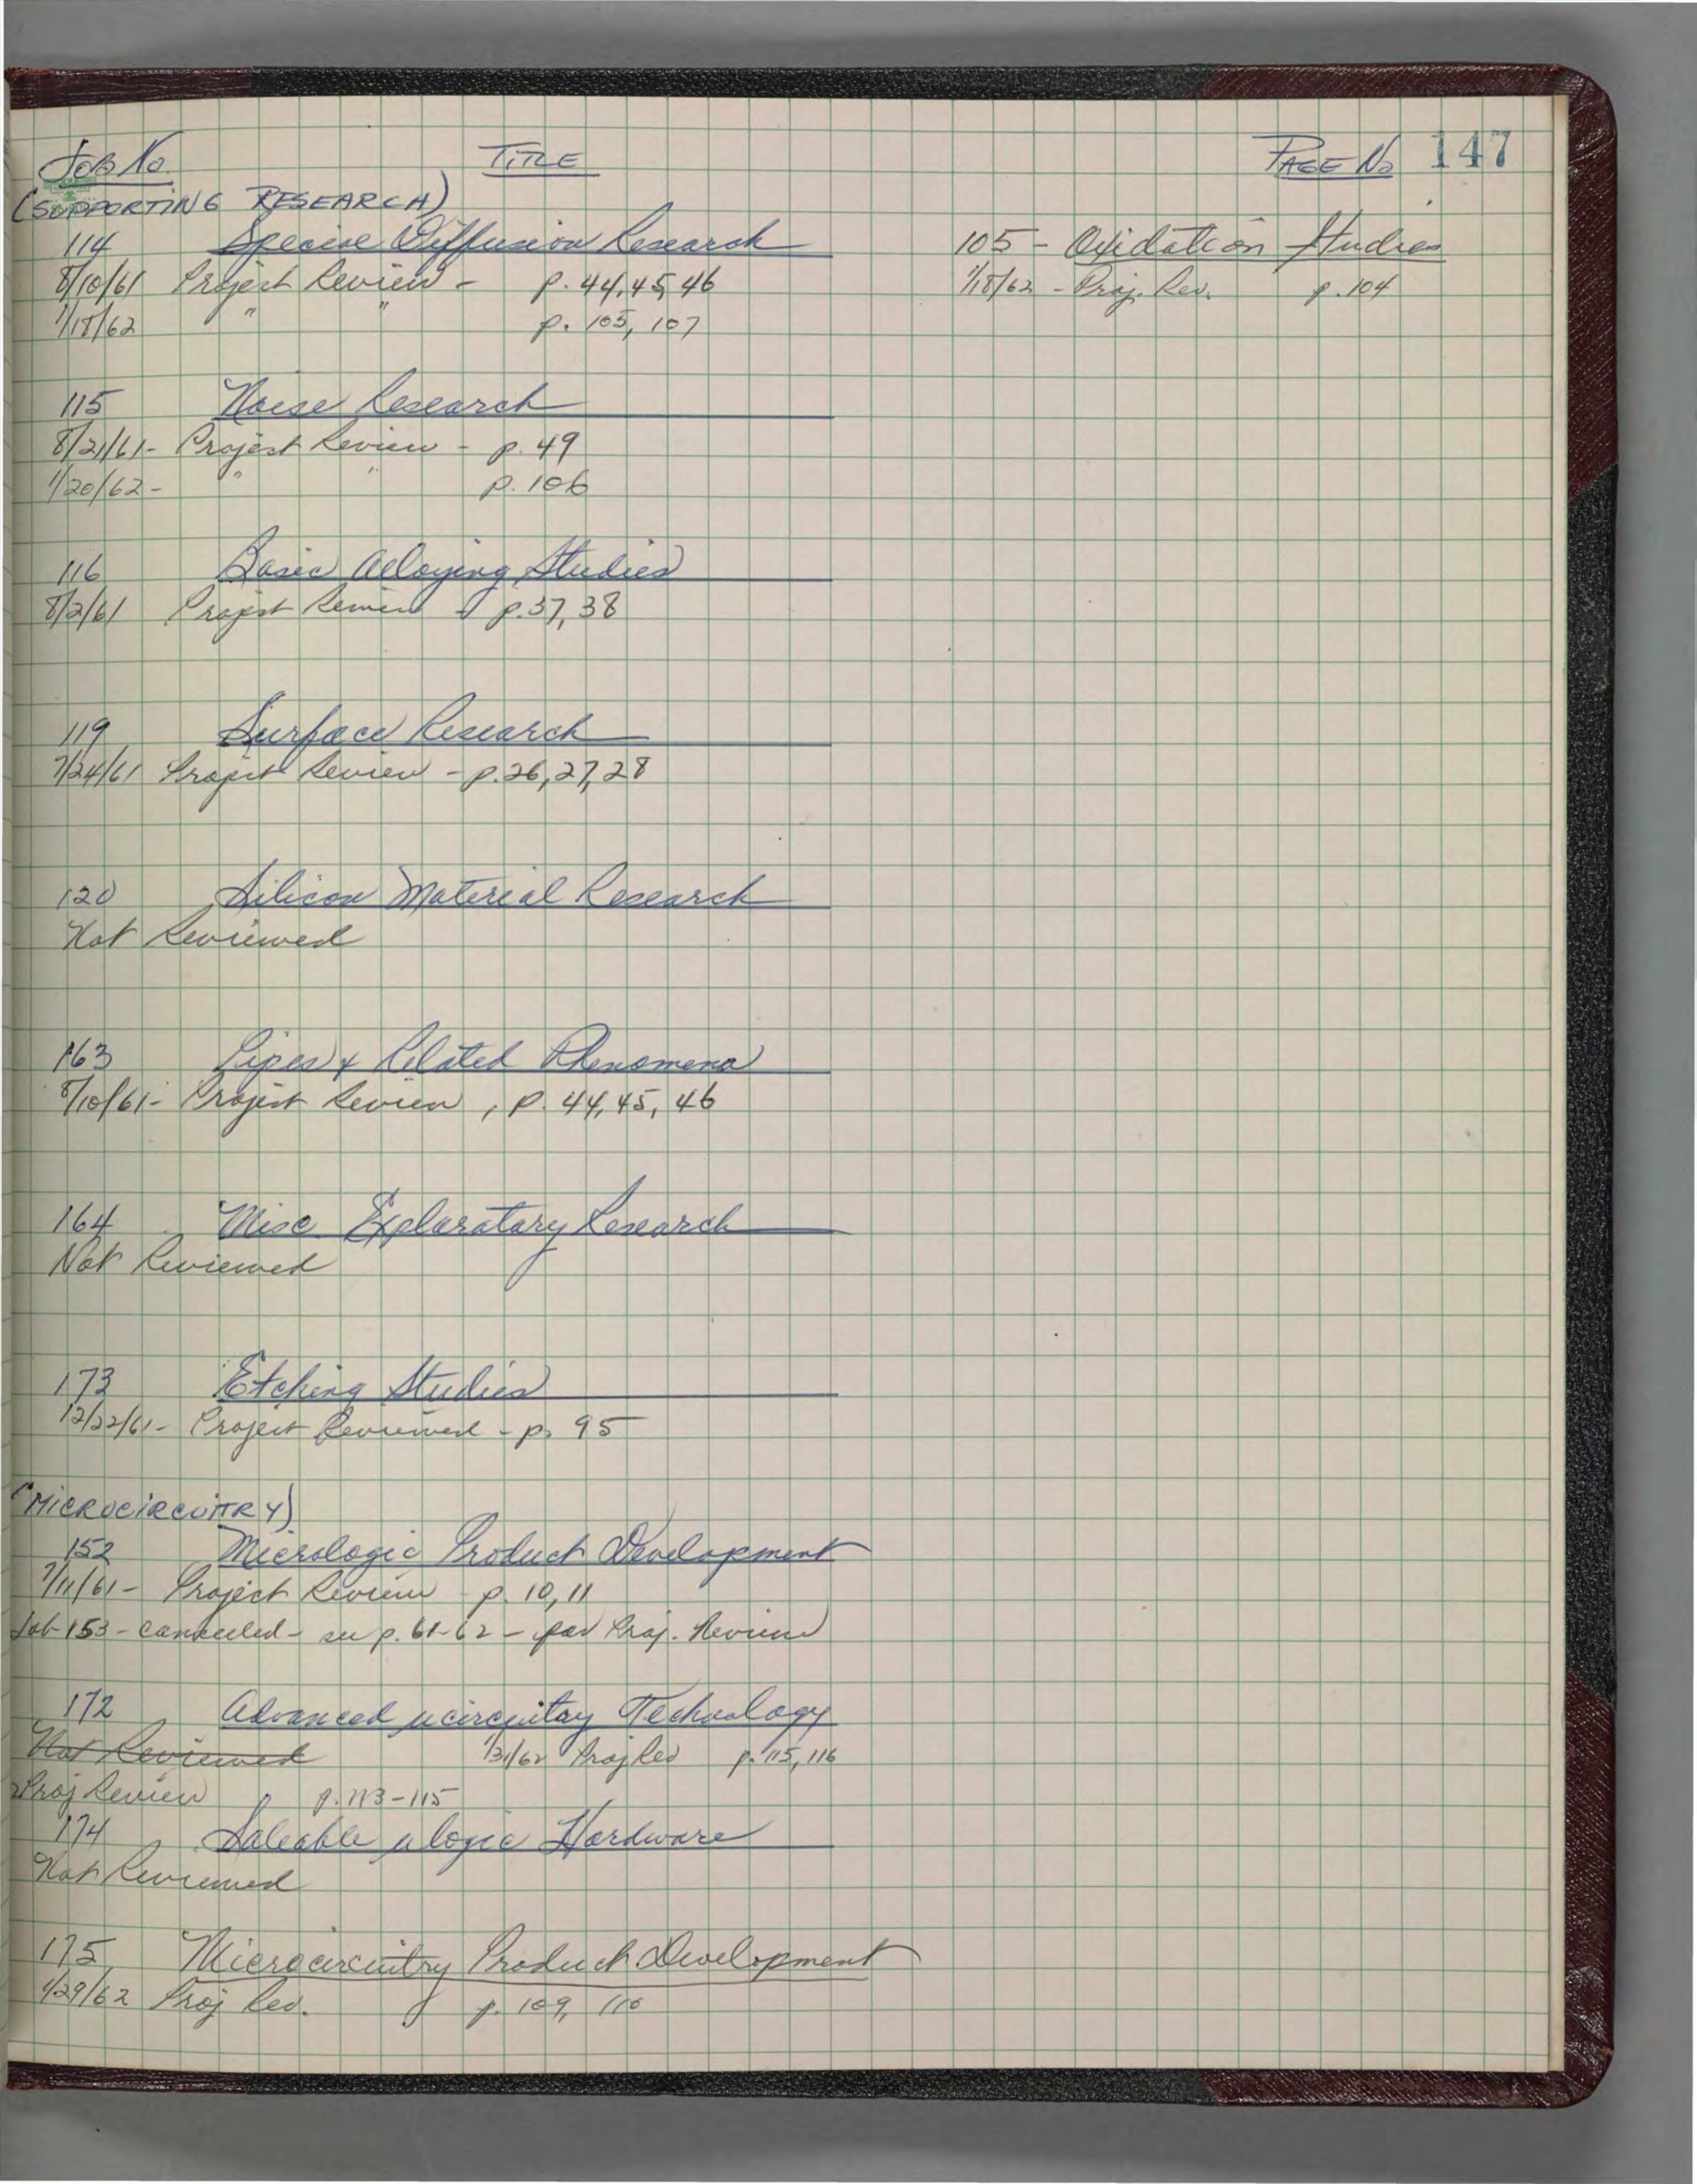 JOB No. TITLE PAGE No 147
(SUPPORTING RESEARCH)
114 Special Diffusion Research
8/10/61 Project Review - p. 44, 45, 46
1/18/62 " " p. 105, 107
105 - Oxidation Studies
1/18/62 - Proj. Rev. p. 104
115 Noise Research
8/21/61 - Project Review - p. 49
1/20/62 - " " p. 106
116 Basic Alloying Studies
8/2/61 Project Review - p. 37, 38
119 Surface Research
7/24/61 Project Review - p. 26, 27, 28
120 Silicon Material Research
Not Reviewed
163 Pipes & Related Phenomena
8/10/61 - Project Review, p. 44, 45, 46
164 Misc. Exploratory Research
Not Reviewed
173 Etching Studies
12/22/61 - Project Reviewed - p. 95
(MICROCIRCUITRY)
152 Micrologic Product Development
7/11/61 - Project Review - p. 10, 11
Job 153 - cancelled - see p. 61-62 - for Proj. Review
172 Advanced µcircuitry Technology
Not Reviewed 1/31/62 Proj Rev p. 115, 116
Proj Review p. 113-115
174 Saleable µlogic Hardware
Not Reviewed
175 Microcircuitry Product Development
1/29/62 Proj Rev. p. 109, 110